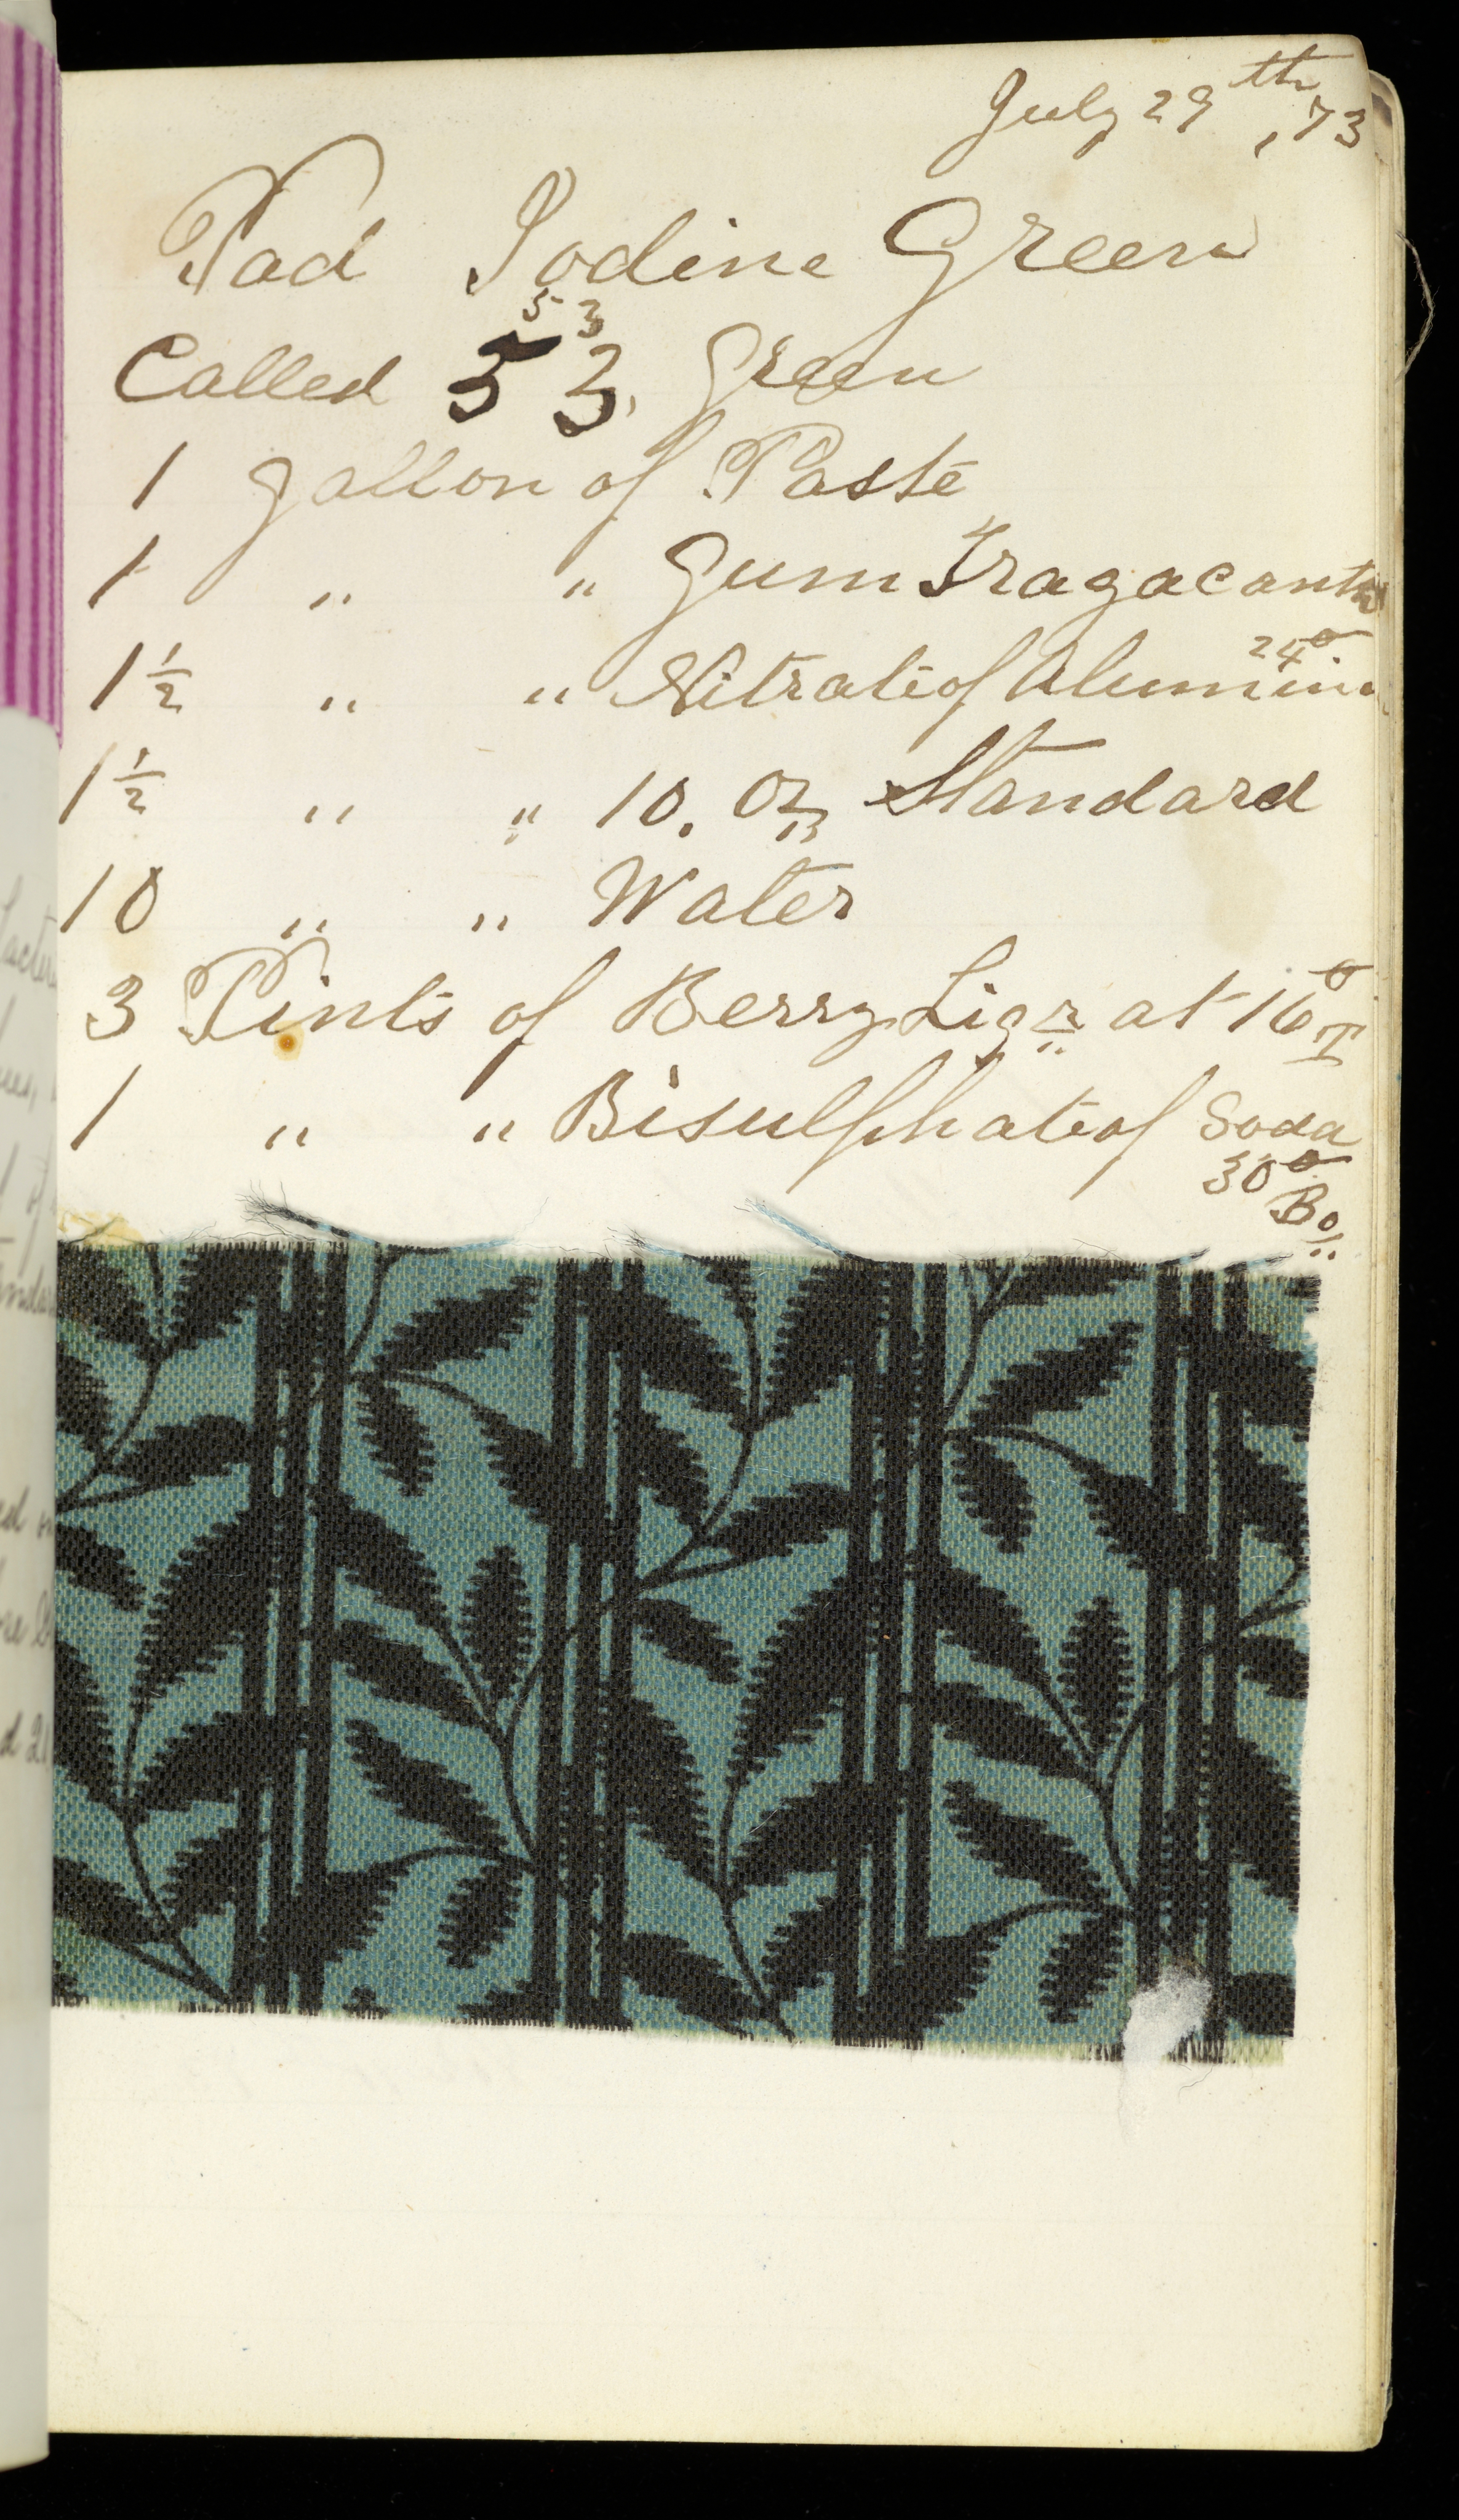 July 29th, 73
Pad Iodine Green
5 3
Called 53. Green
1 gallon of Paste
1 " " Gum Tragacanth
24°
1½ " " Nitrate of Alumina
1½ " " 10. Oz Standard
10 " " Water
3 Pints of Berry Liqr at 16° T
1 " " Bisulphate of Soda
30°